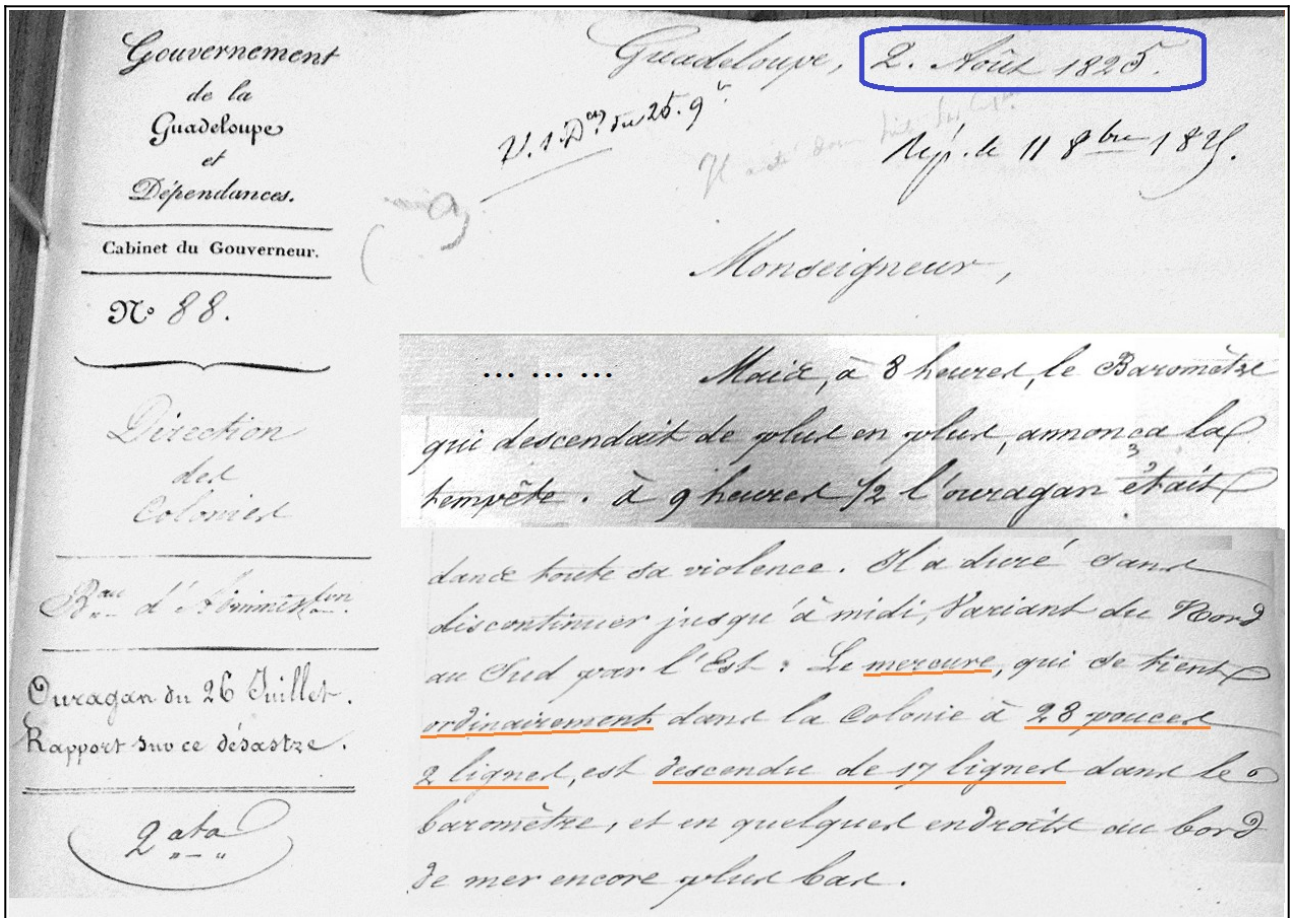 Gouvernement
de la
Guadeloupe
et
Dépendances.
Cabinet du Gouverneur.
N° 88.
Direction
des
Colonies
Bau d'Administon.
Ouragan du 26 Juillet.
Rapport sur ce désastre.
2 ata
Guadeloupe, 2. Août 1825.
V. 1. Des du 25. 9
Il a été
Rép. le 11 8bre 1825.
Monseigneur,
... ... ... Mais, à 8 heures, le Baromètre
qui descendait de plus en plus, annonça la
tempête. à 9 heures 1/2 l'ouragan était
dans toute sa violence. Il a duré sans
discontinuer jusqu'à midi, Variant du Nord
au Sud par l'Est : Le mercure, qui se tient
ordinairement dans la Colonie à 28 pouces
2 lignes, est descendu de 17 lignes dans le
baromètre, et en quelques endroits au bord
de mer encore plus bas.